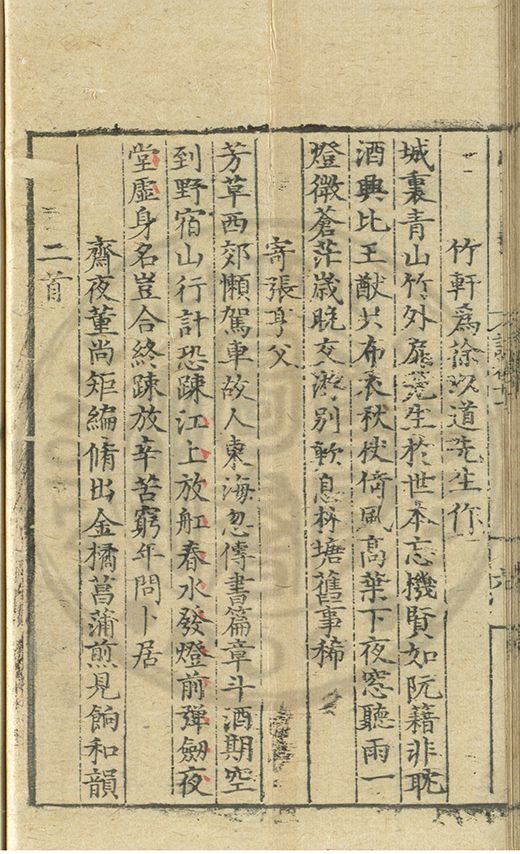 竹軒爲徐以道先生作
城裏青山竹外扉先生於世本忘機賢如阮籍非耽
酒興比王猷共布衣秋仗倚風高葉下夜窓聽雨一
燈微蒼茫歲晚交游別軟息林塘舊事稀
寄張亨父
芳草西郊懶駕車故人東海忽傳書篇章斗酒期空
到野宿山行計恐疎江上放舡春水發燈前彈劍夜
堂虛身名豈合終踈放辛苦窮年問卜居
齋夜董尚矩編脩出金橘菖蒲煎見餉和韻
二首